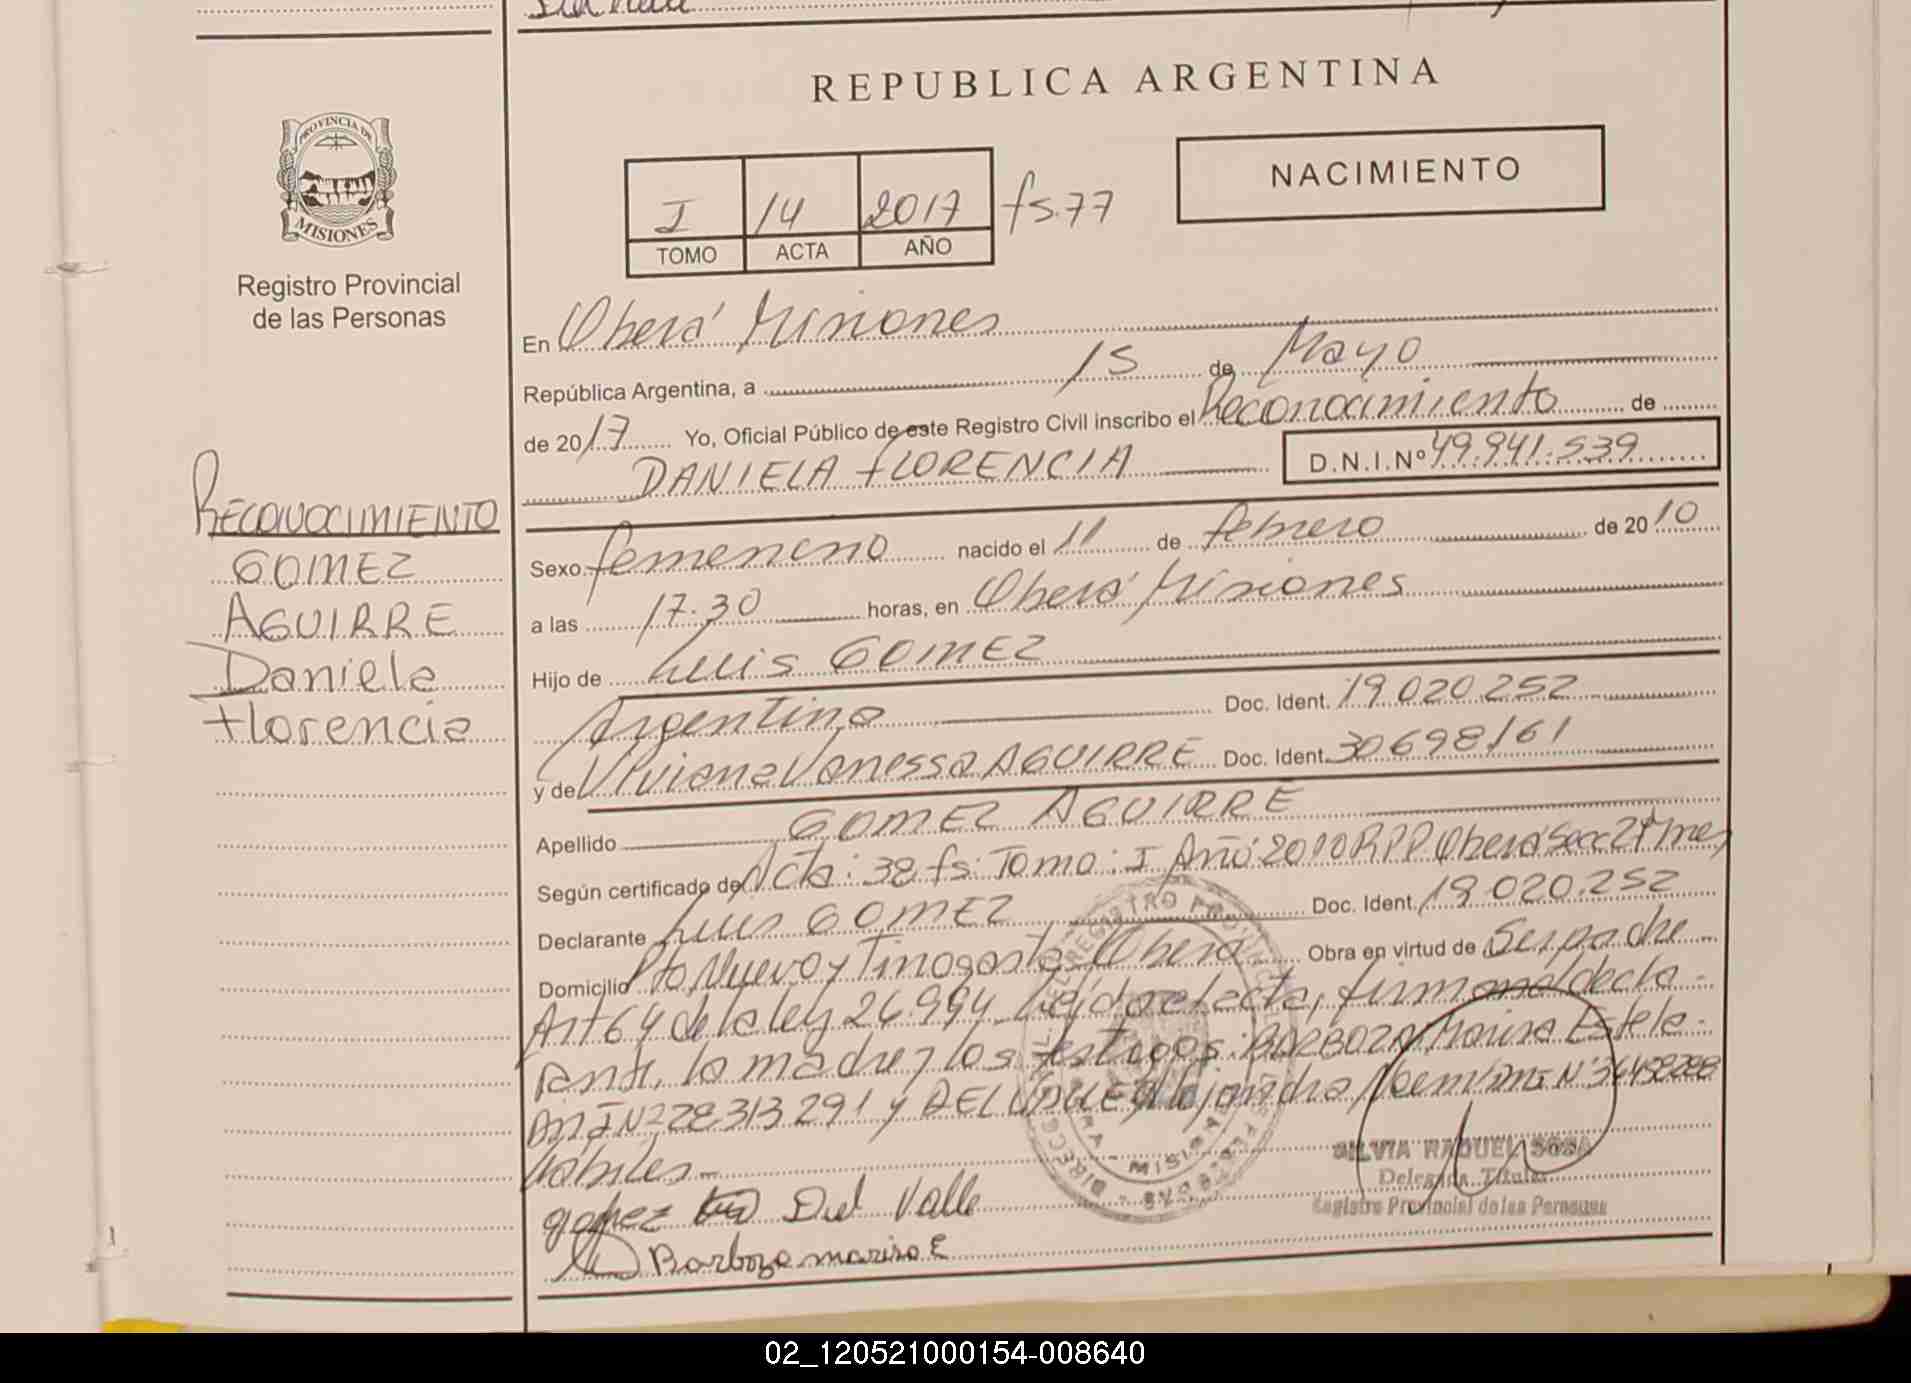 REPUBLICA ARGENTINA
PROVINCIA DE
MISIONES
Registro Provincial
de las Personas
NACIMIENTO
I 14 2017 fs.77
TOMO ACTA AÑO
En Oberá Misiones
República Argentina, a 15 de Mayo
de 2017 Yo, Oficial Público de este Registro Civil inscribo el Reconocimiento de
DANIELA FLORENCIA D.N.I.Nº 49.941.539
RECONOCIMIENTO
GOMEZ
AGUIRRE
Daniela
Florencia
Sexo femenino nacido el 11 de febrero de 2010
a las 17.30 horas, en Oberá Misiones
Hijo de Luis GOMEZ
Argentino Doc. Ident. 19.020.252
y de Viviana Vanessa AGUIRRE Doc. Ident. 30698161
Apellido GOMEZ AGUIRRE
Según certificado de Acta: 38 fs: Tomo: I Año: 2010 RPP Oberá Secc 2º Mnes
Declarante Luis GOMEZ Doc. Ident. 19.020.252
Domicilio Pto Nuevo y Tinogasta Oberá Obra en virtud de Ser padre
Art 64 de la ley 26.994 Leída el acta, firman el decla-
rante, la madre y los testigos: BARBOZA, Marisa Estela
DNI Nº 28.313.291 y DEL VALLE Alejandra Noemí DNI Nº 36458288
hábiles
gomez Del Valle
Barboza marisa E
SILVIA RAQUEL SOSA
Delegada Titular
Registro Provincial de las Personas
02_120521000154-008640